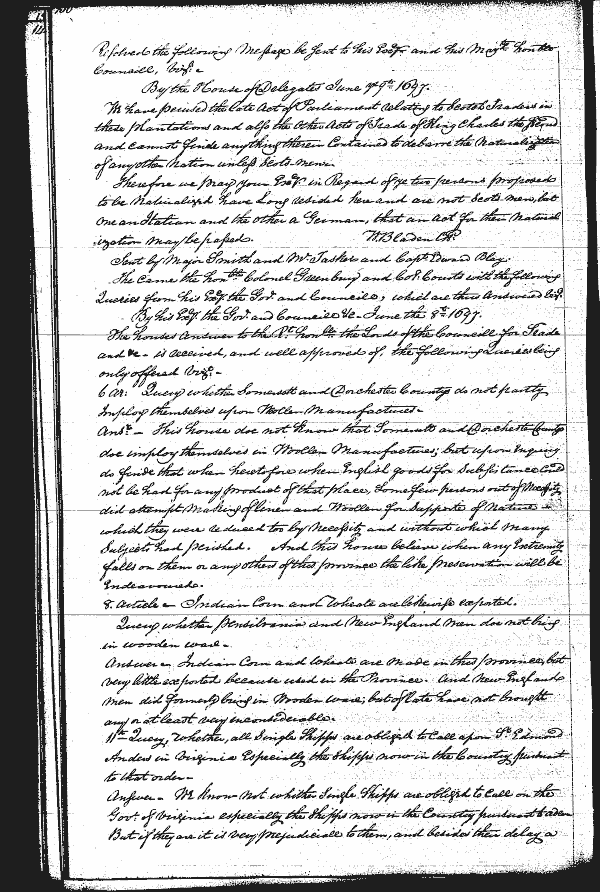 Resolved the following Message be Sent to his Exc:y and his Maj:ts hon:ble
Councill, viz:-
By the House of Delegates June ye 9th 1697.
We have perused the late Act of Parliament relating to Scotch Traders in
these plantations and also the other Acts of Trade of King Charles the
and cannot finde any thing therein Contained to debarre the Naturalization
of any other Nation unless Scots men.
Therefore we pray your Exc:y in Regard of ye two persons proposed
to be Naturalized have Long resided here and are not Scots men, but
one an Italian and the other a German, that an Act for their Natural
ization may be passed. W. Bladen Clk.
Sent by Major Smith and Mr Tasker and Capt Edward Blay.
The Came the hon:ble Colonel Greenbury and Col. Courts with the following
Queries from his Exc:y the Gov:r and Councill, which are then Answered viz:
By his Exc:y the Gov:r and Councill &c - June the 8th 1697.
The houses Answer to the Rt hon:ble the Lords of the Councill for Trade
and &c - is received, and well approved of, the following Queries being
only offered viz:-
6 Ar: Query whether Somersett and Dorchester Countys do not partly
Imploy themselves upon Wollen Manufactures-
Ansr - This house doe not Know that Somersett and Dorchester County
doe imploy themselves in Woollen Manufactures; but upon Enquiry
do finde that when heretofore when English goods for Subsistance Could
not be had for any product of that place, Some few persons out of Necessity
did attempt Making of linen and Woollen for Supporte of Nature -
which they were reduced too by Necessity and without which many
Subjects had perished. And this house believe when any Extremity
falls on them or any others of this province the like preservation will be
Endeavoured.
8. Article - Indian Corn and Wheate are likewise exported.
Query whether Pensilvania and New England men doe not bring
in wooden ware-
Answer - Indian Corn and Wheate are Made in this province, but
very little exported because used in the Province. And New England
men did formerly bring in Wooden ware, but of late have not brought
any or at least very inconsiderable.
11th Query, Whether, all Single Shipps are obliged to Call upon Sr Edmond
Andros in Virginia Especially the Shipps now in the Country pursuant
to that order-
Answer - We Know not whether Single Shipps are obliged to Call on the
Govr of Virginia especially the Shipps now in the Country pursuant to order
But if they are it is very prejudiciale to them, and besides their delay a